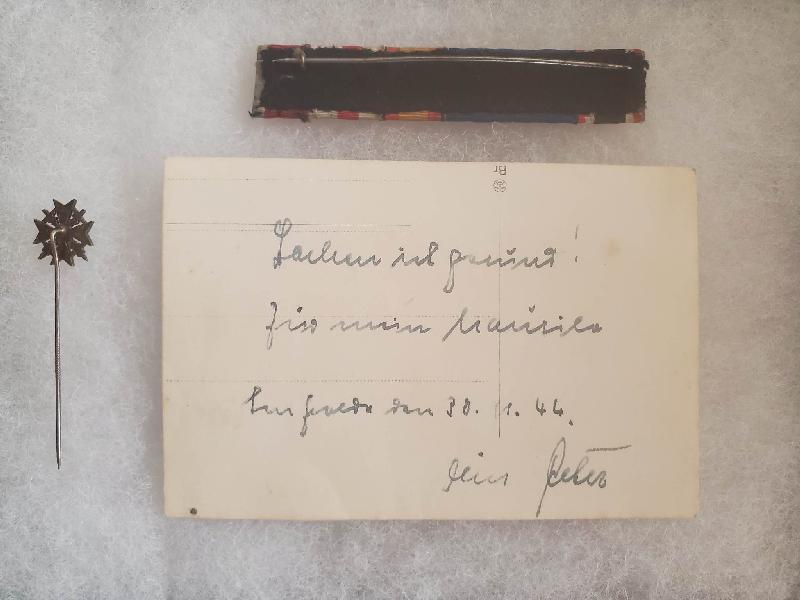 Br
Lachen ist gesund!
Für mein Mausile
Im Felde den 30. 11. 44.
dein Peter